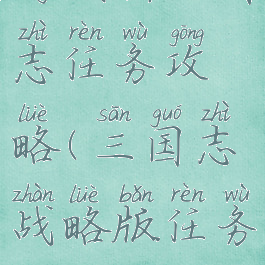 zhì rèn wù gōng
志任务攻
lüè sān guó zhì
略(三国志
zhàn lüè bǎn rèn wù
战略版任务